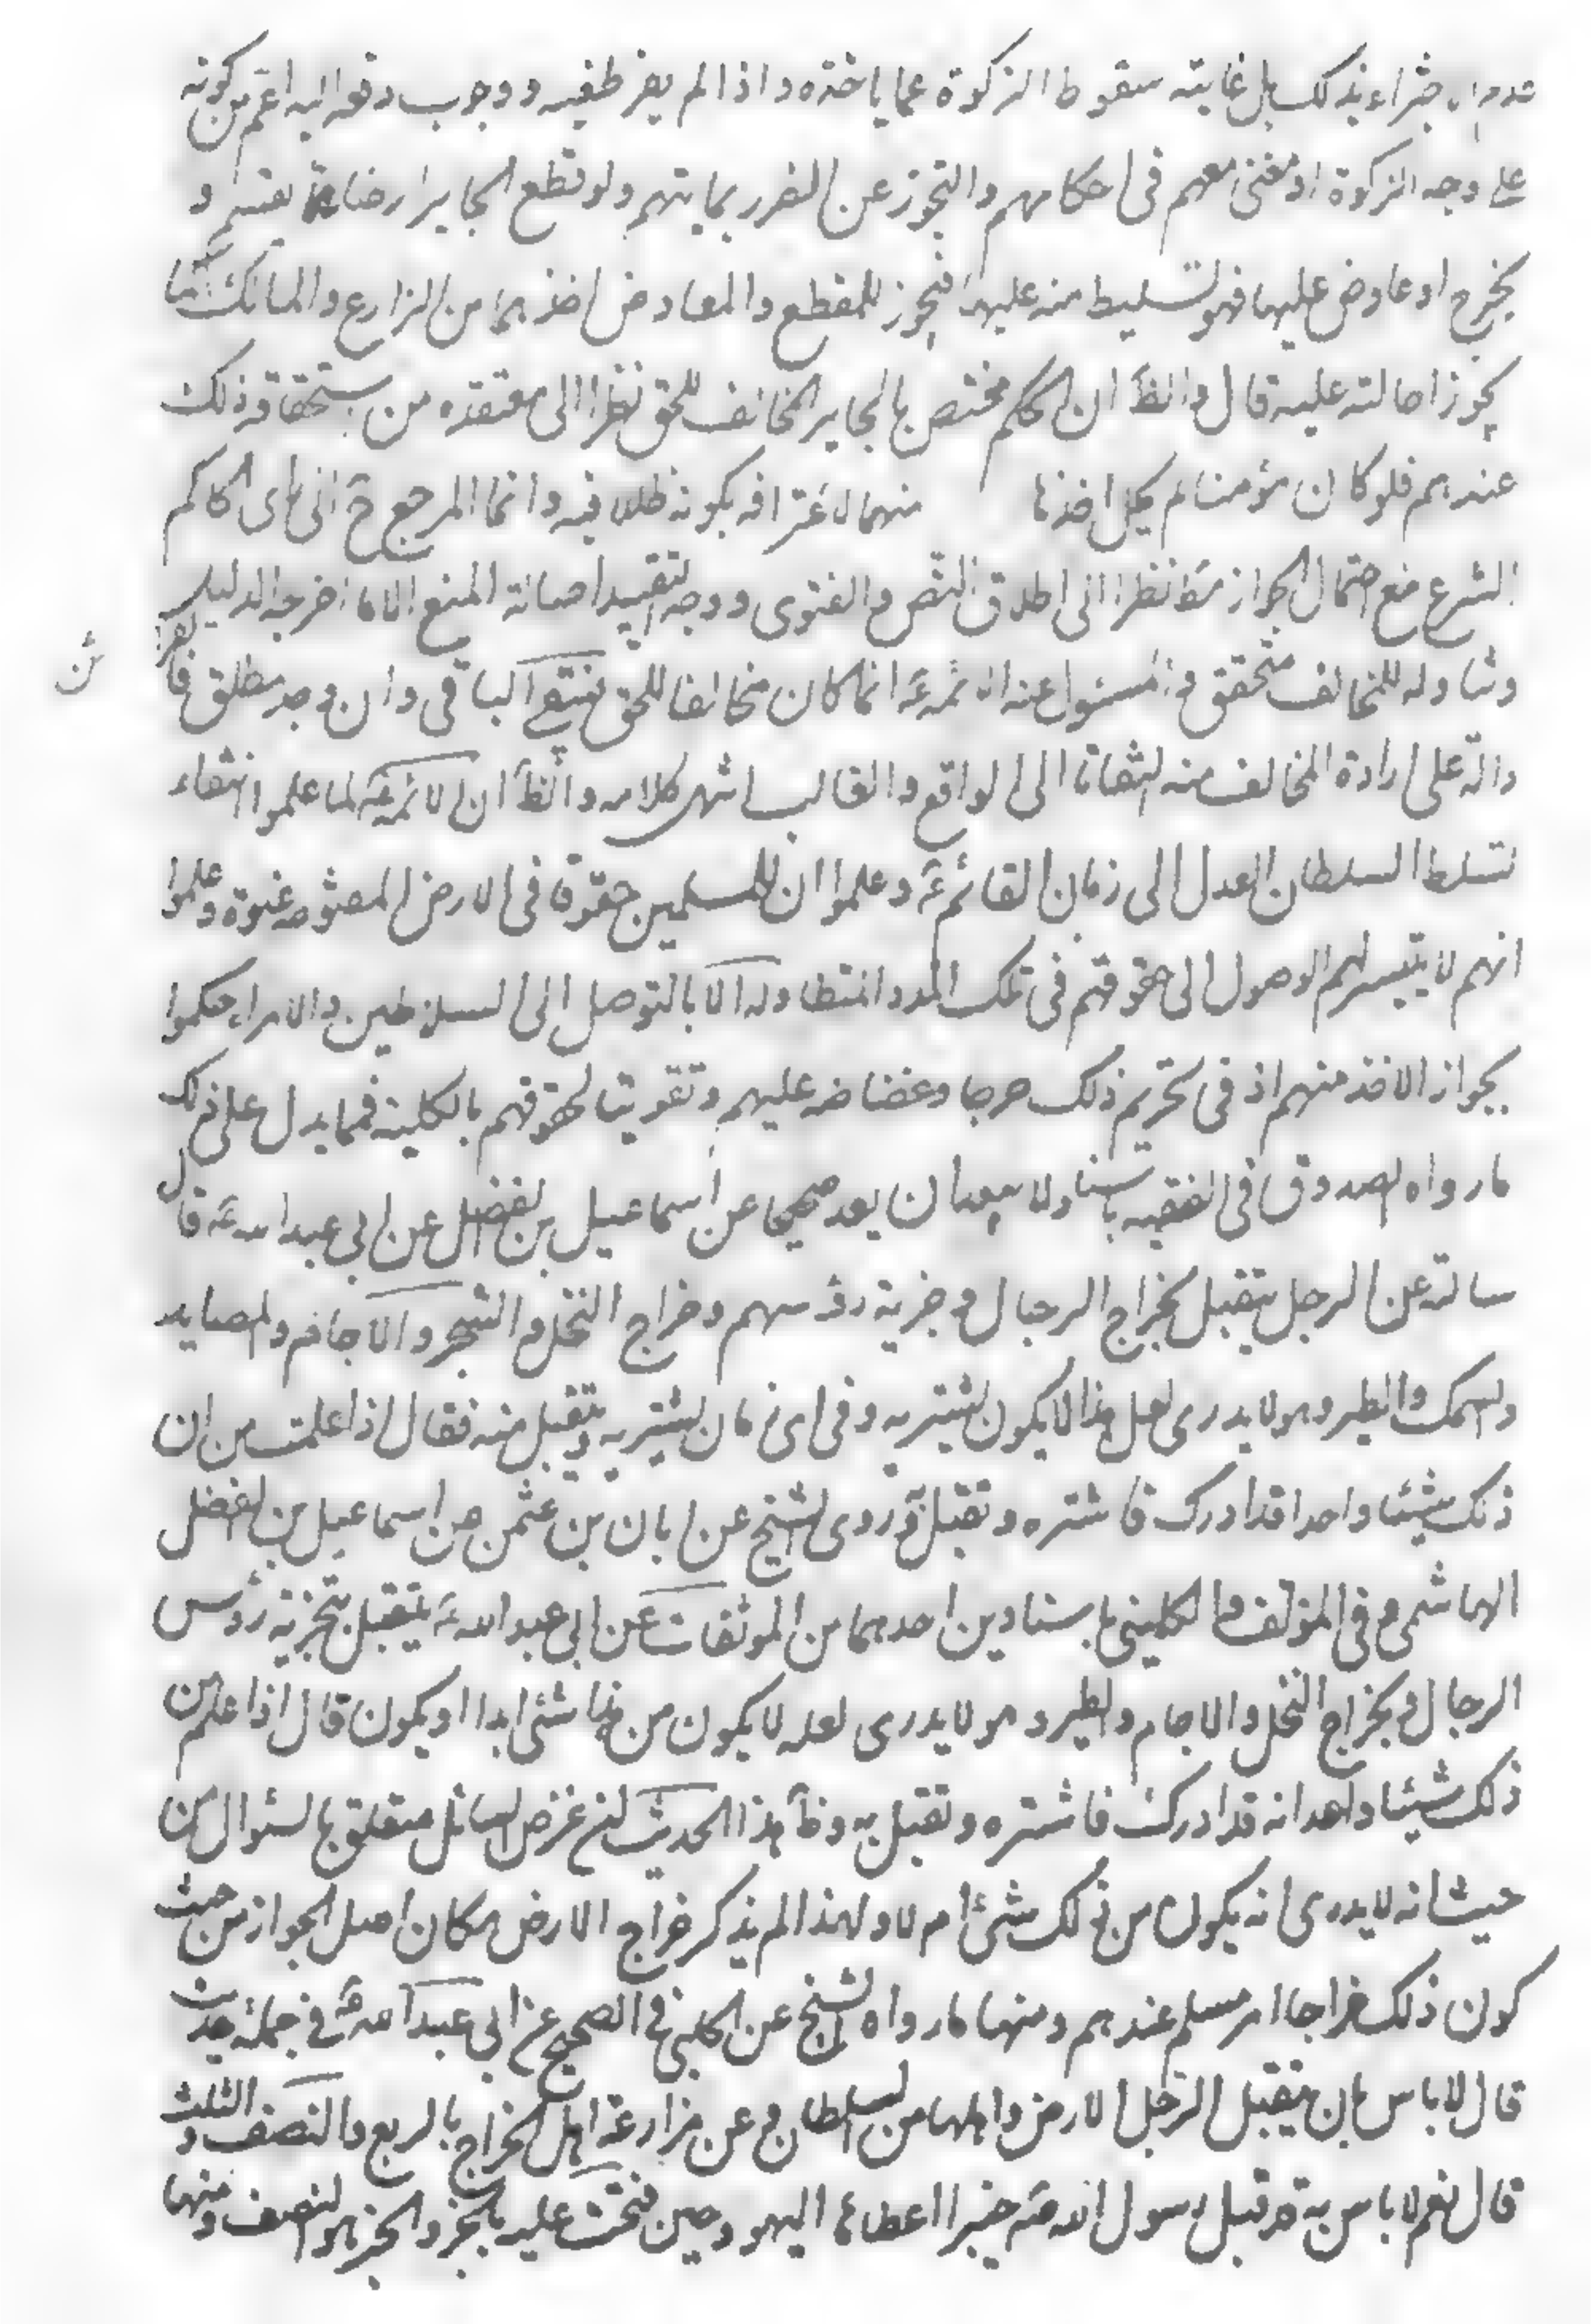 عدم الاجتزاء بذلك بل غايته سقوط الزكوة عما ياخذه واذا لم يفرط فيه ووجوب دفعه اليه اعم من كونه
على وجه الزكوة او مضى معهم في احكامهم والتحرز عن الضرر بمباينتهم ولو قطع الجاير ارضا مما يقسم و
يخرج او عاوض عليها فهو تسليط منه عليها فيجوز للمقطع والمعاوض اخذهما من الزارع والمالك كما
يجوز احالته عليه قال والظ ان الحكم مختص بالجاير المخالف للحق نظرا الى معتقده من استحقاقه ذلك
عندهم فلو كان مؤمنا لم يحل اخذ ما منهما لاعترافه بكونه ظلما فيه وانما المرجع ح الى راى الحاكم
الشرع مع احتمال الجواز مط نظرا الى اطلاق النص والفتوى ووجه التقييد اصالة المنع الا ما اخرجه الدليل
وتناوله للمخالف متحقق والمسئول عنه الائمة ع انما كان مخالفا للحق فيبقى الباقي وان وجد مطلق فالقرا
ئن
دالة على ارادة المخالف منه التفاتا الى الواقع والغالب انتهى كلامه والظ ان الائمة ع لما علموا انتفاء
تسلط السلطان العدل الى زمان القائم ع وعلموا ان للمسلمين حقوقا في الارض المفتوحة عنوة وعلموا
انهم لا يتيسر لهم الوصول الى حقوقهم في تلك المدد المتطاولة الا بالتوصل الى السلاطين والامراء حكموا
بجواز الاخذ منهم اذ في تحريم ذلك حرجا وغضاضة عليهم وتفويتا لحقوقهم بالكلية فمما يدل على ذلك
ما رواه الصدوق في الفقيه باسناد لا يبعد ان يعد صحيحا عن اسماعيل بن الفضل عن ابي عبد الله ع قال
سالته عن الرجل يتقبل بخراج الرجال وجزية رؤسهم وخراج النخل والشجر والاجام والمصايد
والسمك والطير وهو لا يدرى لعل هذا لا يكون يشتريه وفي اى زمان يشتريه ويتقبل منه فقال اذا علمت من ان
ذلك شيئا واحدا قد ادرك فاشتره وتقبل به وروى الشيخ عن ابان بن عثمن عن اسماعيل بن الفضل
الهاشمي وفي الموثق والكليني باسنادين احدهما من الموثقات عن ابي عبد الله ع يتقبل بجزية رؤس
الرجال وبخراج النخل والاجام والطير وهو لا يدرى لعله لا يكون من هذا شئ ابدا او يكون قال اذا علم من
ذلك شيئا واحدا انه قد ادرك فاشتره وتقبل به وظ هذا الحديث ان غرض السائل متعلق بالسئوال من
حيث انه لا يدرى انه يكون من ذلك شئ ام لا ولهذا لم يذكر خراج الارض فكان اصل الجواز من حيث
كون ذلك خراجا امر مسلم عندهم ومنها ما رواه الشيخ عن الحلبي في الصحيح عن ابي عبد الله ع في جملة حديث
قال لا باس بان يتقبل الرجل الارض واهلها من السلطان وعن مزارعة اهل الخراج بالربع والنصف والثلث
قال نعم لا باس به قد قبل رسول الله ص خيبر اعطاها اليهود حين فتحت عليه بالخبر والخبر هو النصف ومنها